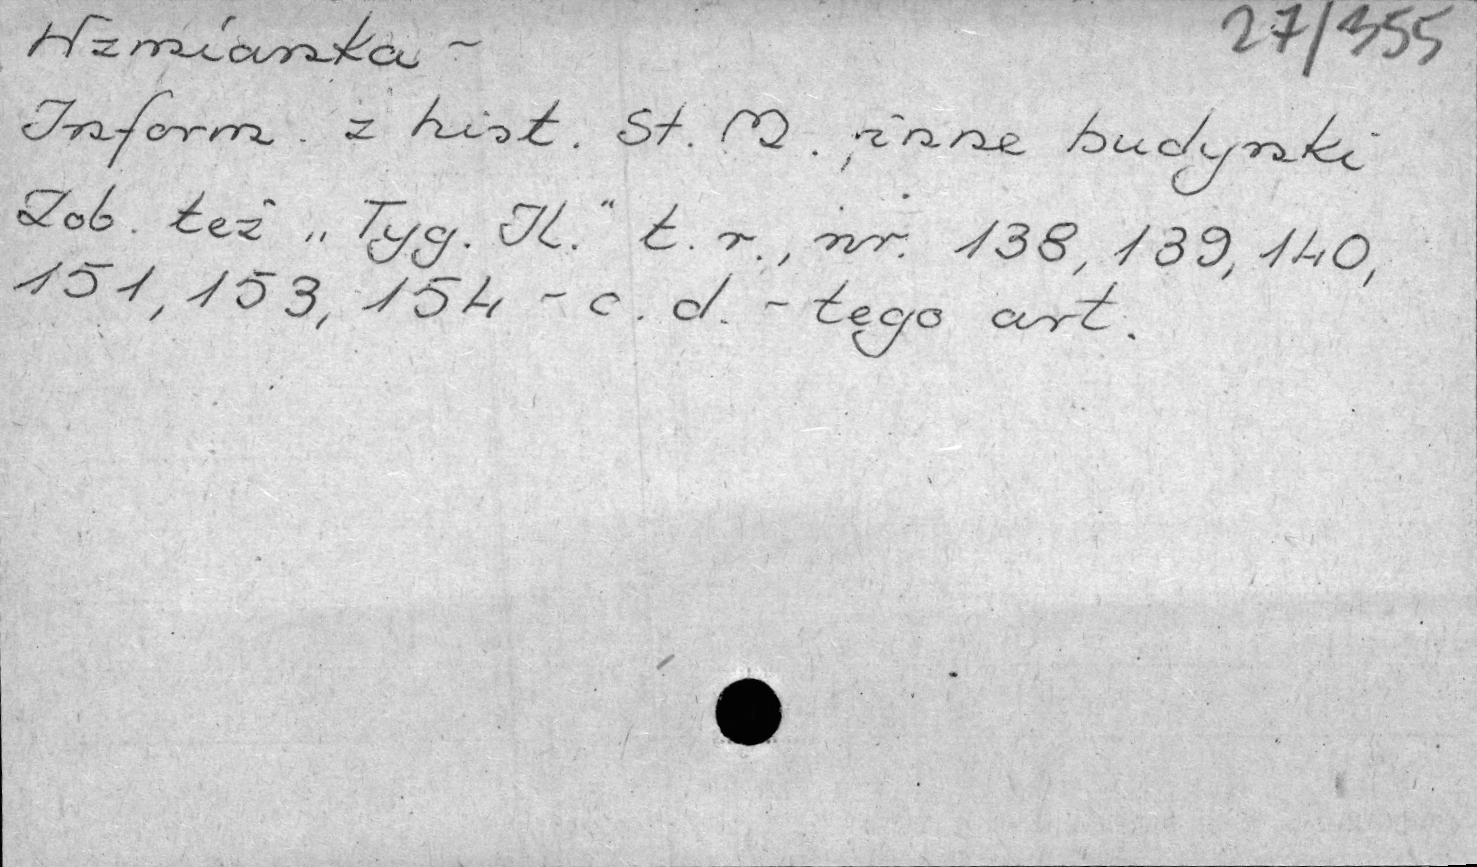 27/355
Wzmianka -
Inform. z hist. St. M. inne budynki
Zob. też „Tyg. Il." t. r., nr. 138, 139, 140,
151, 153, 154 - c. d. - tego art.